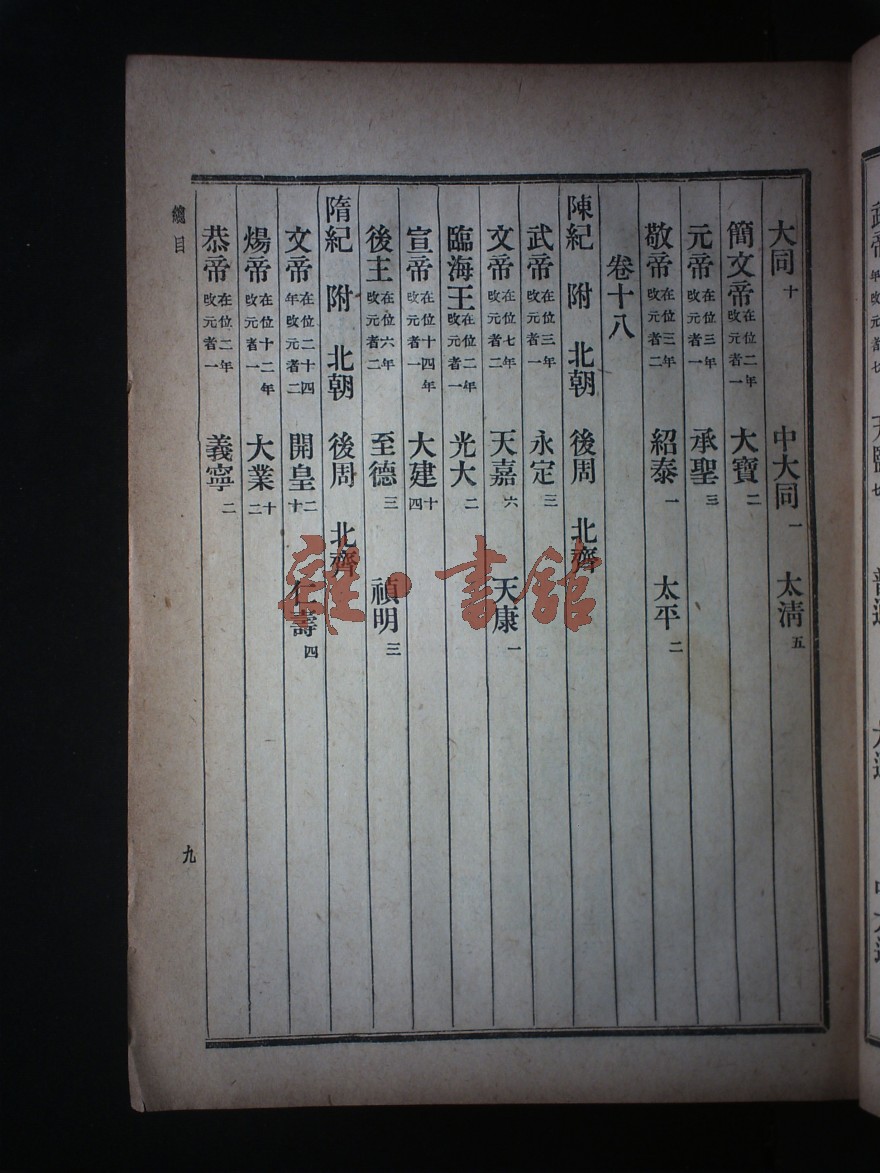 大同十 中大同一 太淸五
簡文帝在位二年改元者一 大寶二
元帝在位三年改元者一 承聖三
敬帝在位三年改元者二 紹泰一 太平二
卷十八
陳紀 附 北朝 後周 北齊
武帝在位三年改元者一 永定三
文帝在位七年改元者二 天嘉六 天康一
臨海王在位二年改元者一 光大二
宣帝在位十四年改元者一 大建十四
後主在位六年改元者二 至德三 禎明三
隋紀 附 北朝 後周 北齊
文帝在位二十四年改元者二 開皇二十 仁壽四
煬帝在位十二年改元者一 大業十二
恭帝在位二年改元者一 義寧二
總目
九
雜·書館
武帝
年改元者七
天監七
普通
大通
中大通